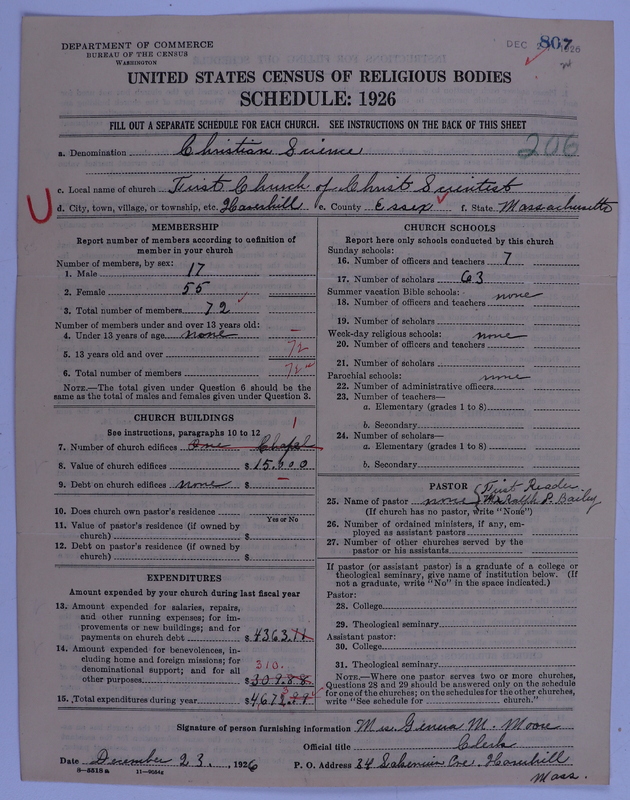 DEPARTMENT OF COMMERCE
BUREAU OF THE CENSUS
WASHINGTON
DEC 1926
807
UNITED STATES CENSUS OF RELIGIOUS BODIES
SCHEDULE: 1926
FILL OUT A SEPARATE SCHEDULE FOR EACH CHURCH. SEE INSTRUCTIONS ON THE BACK OF THIS SHEET
206
a. Denomination Christian Science
c. Local name of church First Church of Christ Scientist
U d. City, town, village, or township, etc. Haverhill e. County Essex f. State Massachusetts
MEMBERSHIP
Report number of members according to definition of
member in your church
Number of members, by sex:
1. Male 17
2. Female 55
3. Total number of members 72
Number of members under and over 13 years old:
4. Under 13 years of age none –
5. 13 years old and over 72
6. Total number of members 72
NOTE.—The total given under Question 6 should be the
same as the total of males and females given under Question 3.
CHURCH BUILDINGS
See instructions, paragraphs 10 to 12
7. Number of church edifices One Chapel 1
8. Value of church edifices $ 15,000
9. Debt on church edifices none $ –
10. Does church own pastor's residence
Yes or No
11. Value of pastor's residence (if owned by
church) $
12. Debt on pastor's residence (if owned by
church) $
EXPENDITURES
Amount expended by your church during last fiscal year
13. Amount expended for salaries, repairs,
and other running expenses; for im-
provements or new buildings; and for
payments on church debt $ 4363.11
14. Amount expended for benevolences, in-
cluding home and foreign missions; for
denominational support; and for all
310.
other purposes $ 309.88
15. Total expenditures during year $ 4,672.
CHURCH SCHOOLS
Report here only schools conducted by this church
Sunday schools:
16. Number of officers and teachers 7
17. Number of scholars 63
Summer vacation Bible schools: none
18. Number of officers and teachers
19. Number of scholars
Week-day religious schools: none
20. Number of officers and teachers
21. Number of scholars
Parochial schools: none
22. Number of administrative officers
23. Number of teachers—
a. Elementary (grades 1 to 8)
b. Secondary
24. Number of scholars—
a. Elementary (grades 1 to 8)
b. Secondary
PASTOR First Reader
25. Name of pastor none Mr Ralph P. Bailey
(If church has no pastor, write "None")
26. Number of ordained ministers, if any, em-
ployed as assistant pastors
27. Number of other churches served by the
pastor or his assistants
If pastor (or assistant pastor) is a graduate of a college or
theological seminary, give name of institution below. (If
not a graduate, write "No" in the space indicated.)
Pastor:
28. College
29. Theological seminary
Assistant pastor:
30. College
31. Theological seminary
NOTE.—Where one pastor serves two or more churches,
Questions 28 and 29 should be answered only on the schedule
for one of the churches; on the schedules for the other churches,
write "See schedule for church."
Signature of person furnishing information Mrs. Geneva M. Moore
Official title Clerk
Date December 23, 1926 P. O. Address 34 Ave. Haverhill
8—5518a 11—9034
Mass.